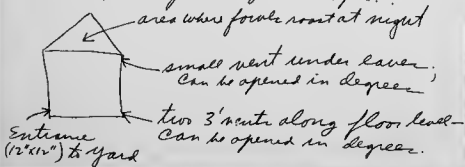 area where fowls roost at night
small vent under eaves;
can be opened in degrees
two 3' vents along floor level—
can be opened in degrees.
Entrance
(12"x12") to yard